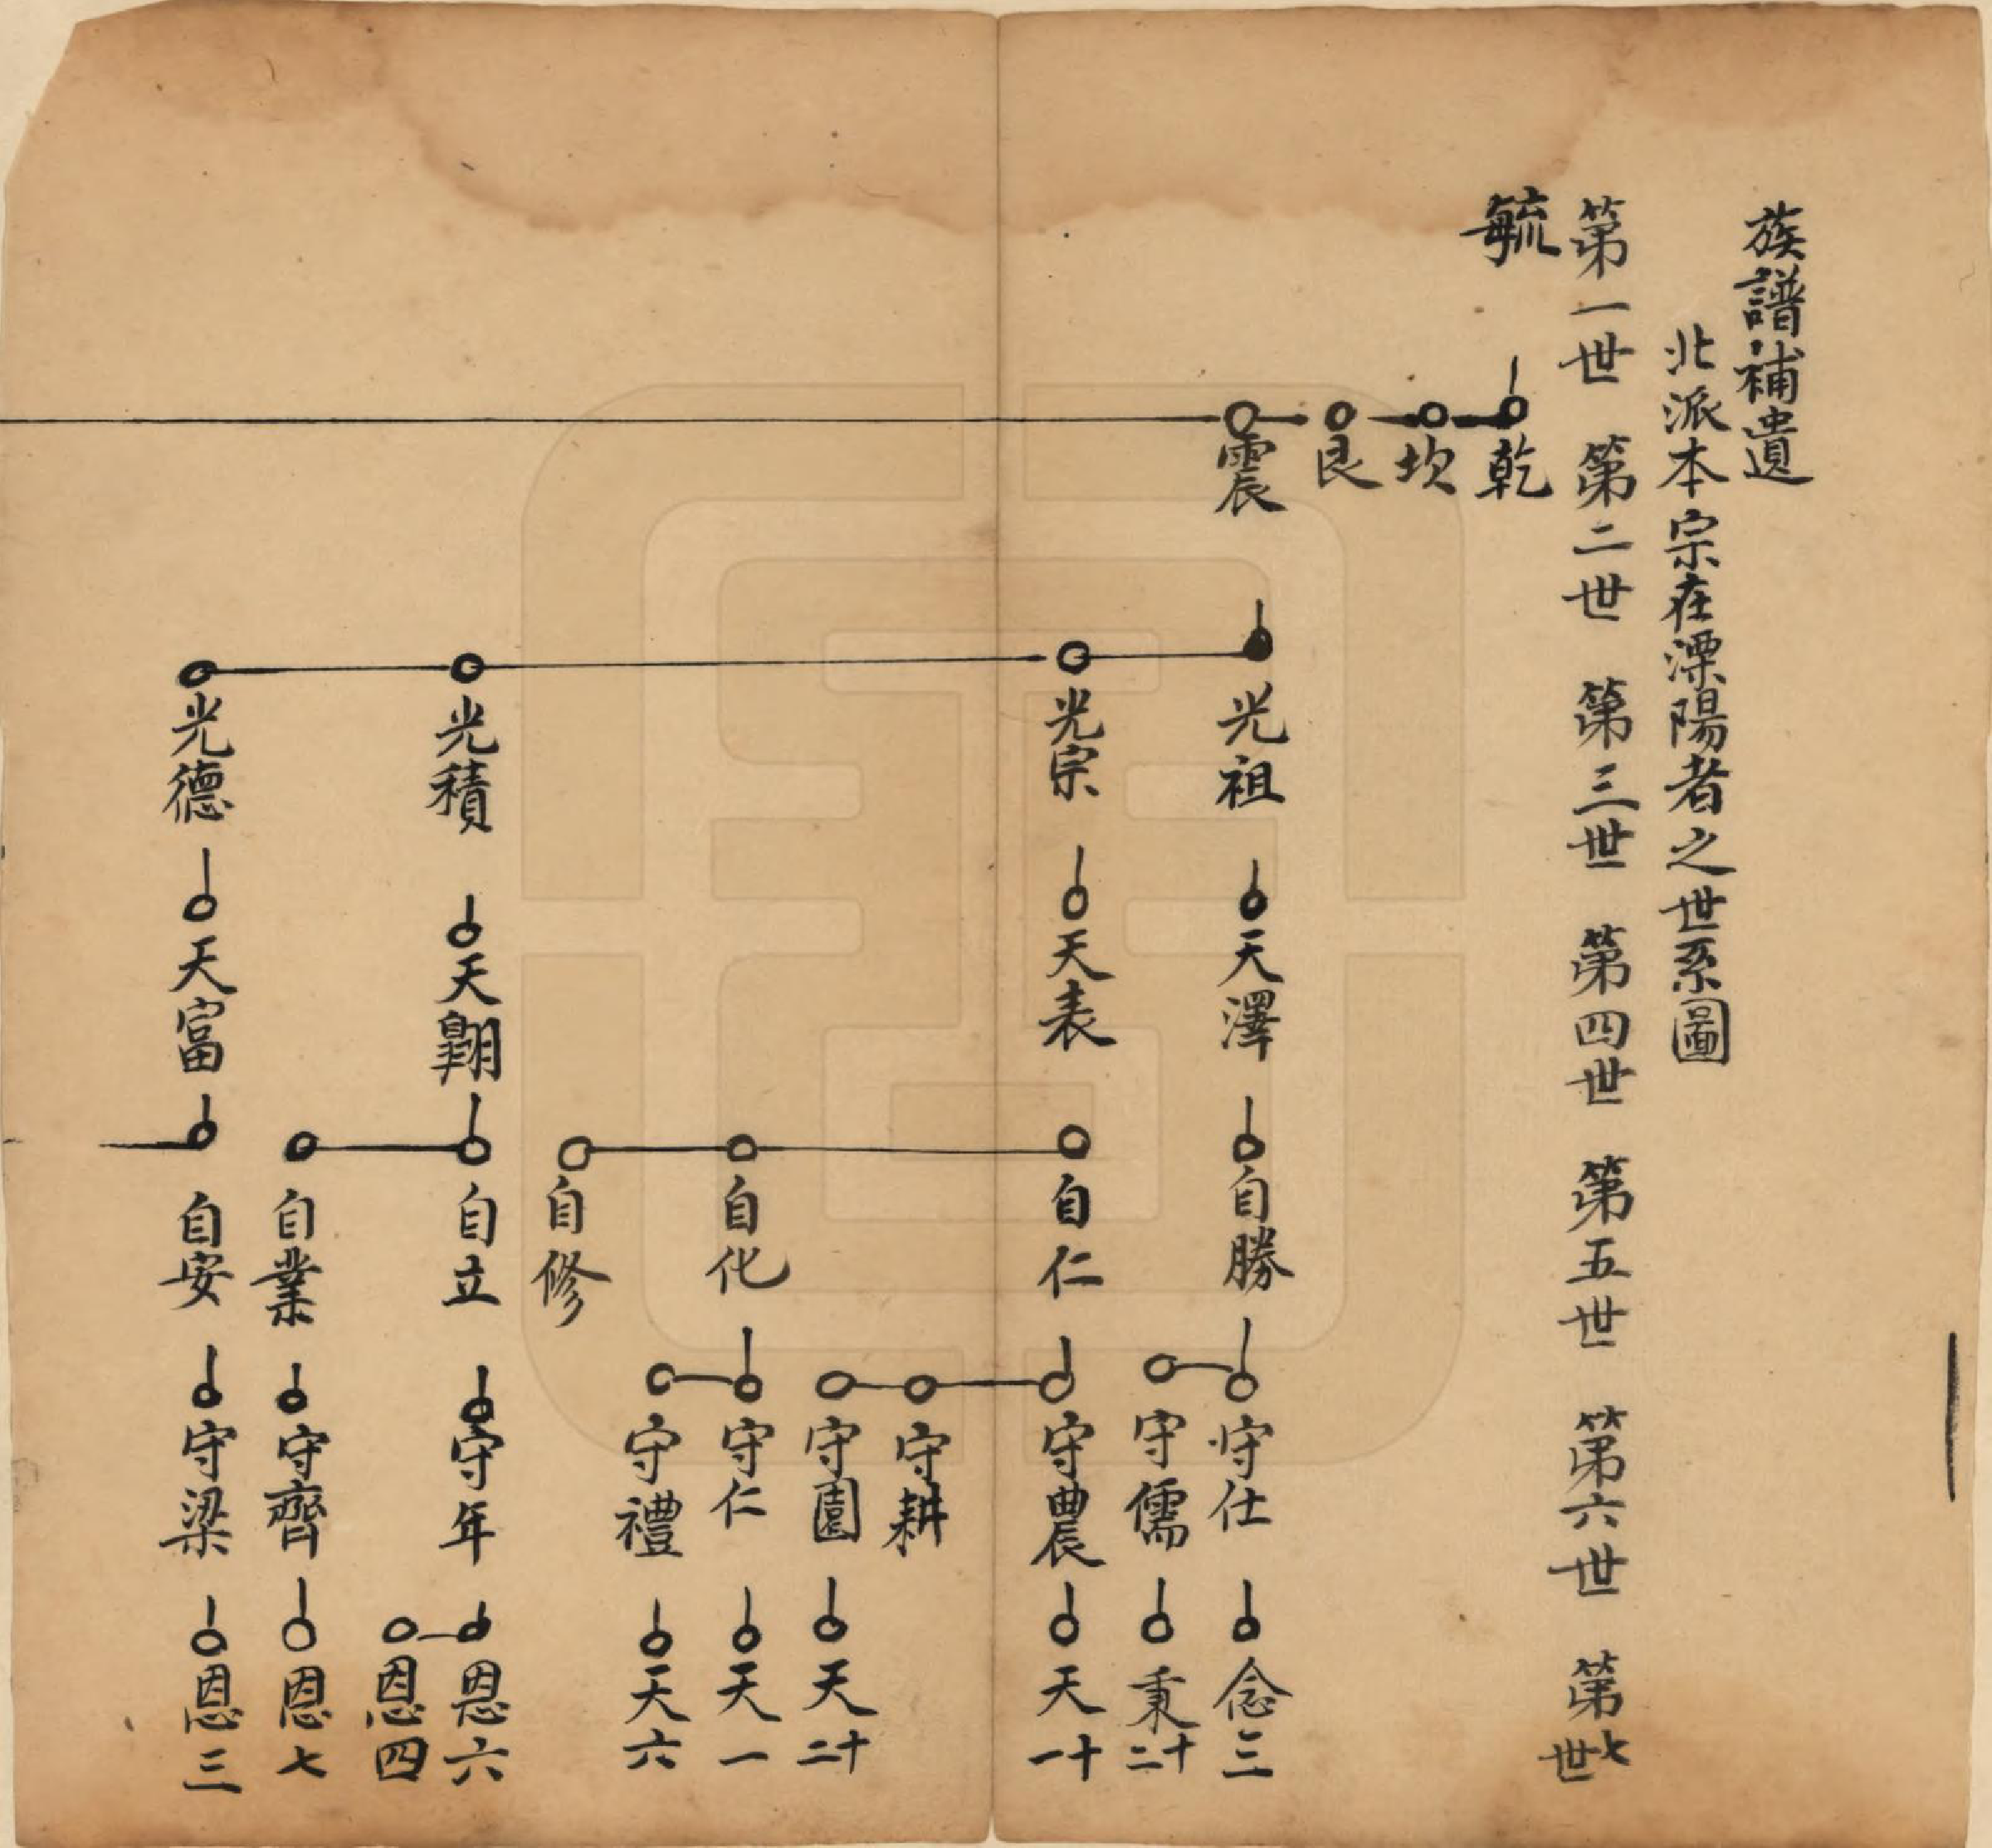 族譜補遺
北派本宗在溧陽者之世系圖
第一世 第二世 第三世 第四世 第五世 第六世 第七世
毓
乾
坎
艮
震
光祖 天澤 自勝 守仕 念三
守儒 秉十二
光宗 天表 自仁 守農 天十一
守耕
守園 天十二
自化 守仁 天一
守禮 天六
自修
光積 天翶 自立 守年 恩六
恩四
自業 守齊 恩七
光德 天富 自安 守梁 恩三